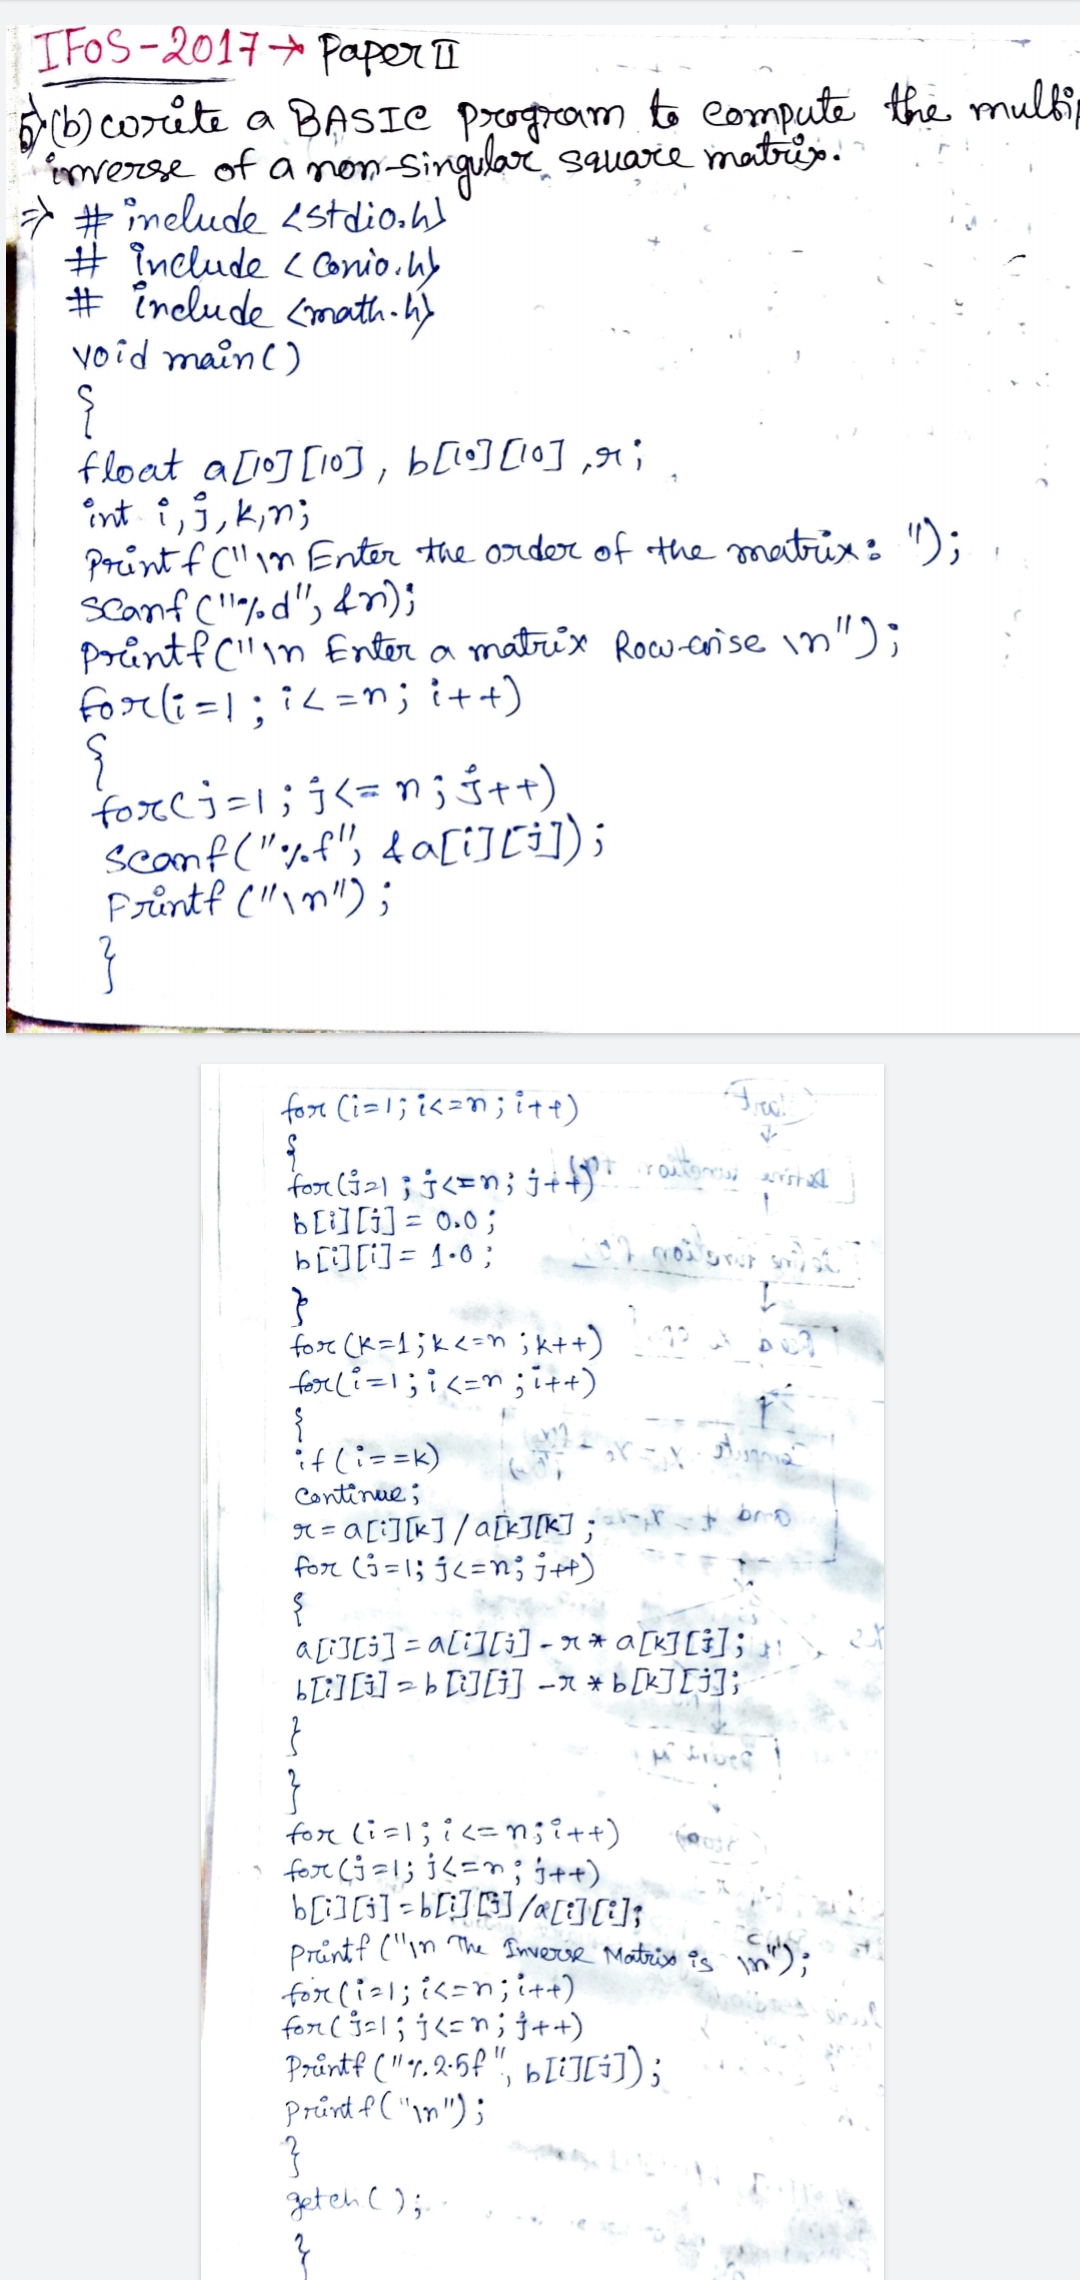 IFoS-2017→ Paper II
5)(b) write a BASIC program to compute the multip
inverse of a non-singular square matrix.
⇒ # include <stdio.h>
# include <conio.h>
# include <math.h>
void main()
{
float a[10][10], b[10][10], r;
int i, j, k, n;
Printf("\n Enter the order of the matrix: ");
scanf("%d", &n);
printf("\n Enter a matrix Row-wise \n");
for(i=1; i<=n; i++)
{
for(j=1; j<=n; j++)
scanf("%f", &a[i][j]);
Printf("\n");
}
for (i=1; i<=n; i++)
{
for(j=1; j<=n; j++)
b[i][j] = 0.0;
b[i][i] = 1.0;
}
for (k=1; k<=n; k++)
for(i=1; i<=n; i++)
{
if(i==k)
continue;
r = a[i][k] / a[k][k];
for (j=1; j<=n; j++)
{
a[i][j] = a[i][j] - r * a[k][j];
b[i][j] = b[i][j] - r * b[k][j];
}
}
for (i=1; i<=n; i++)
for(j=1; j<=n; j++)
b[i][j] = b[i][j] / a[i][i];
printf("\n The Inverse Matrix is \n");
for(i=1; i<=n; i++)
for(j=1; j<=n; j++)
Printf("%.2.5f", b[i][j]);
printf("\n");
}
getch();
}